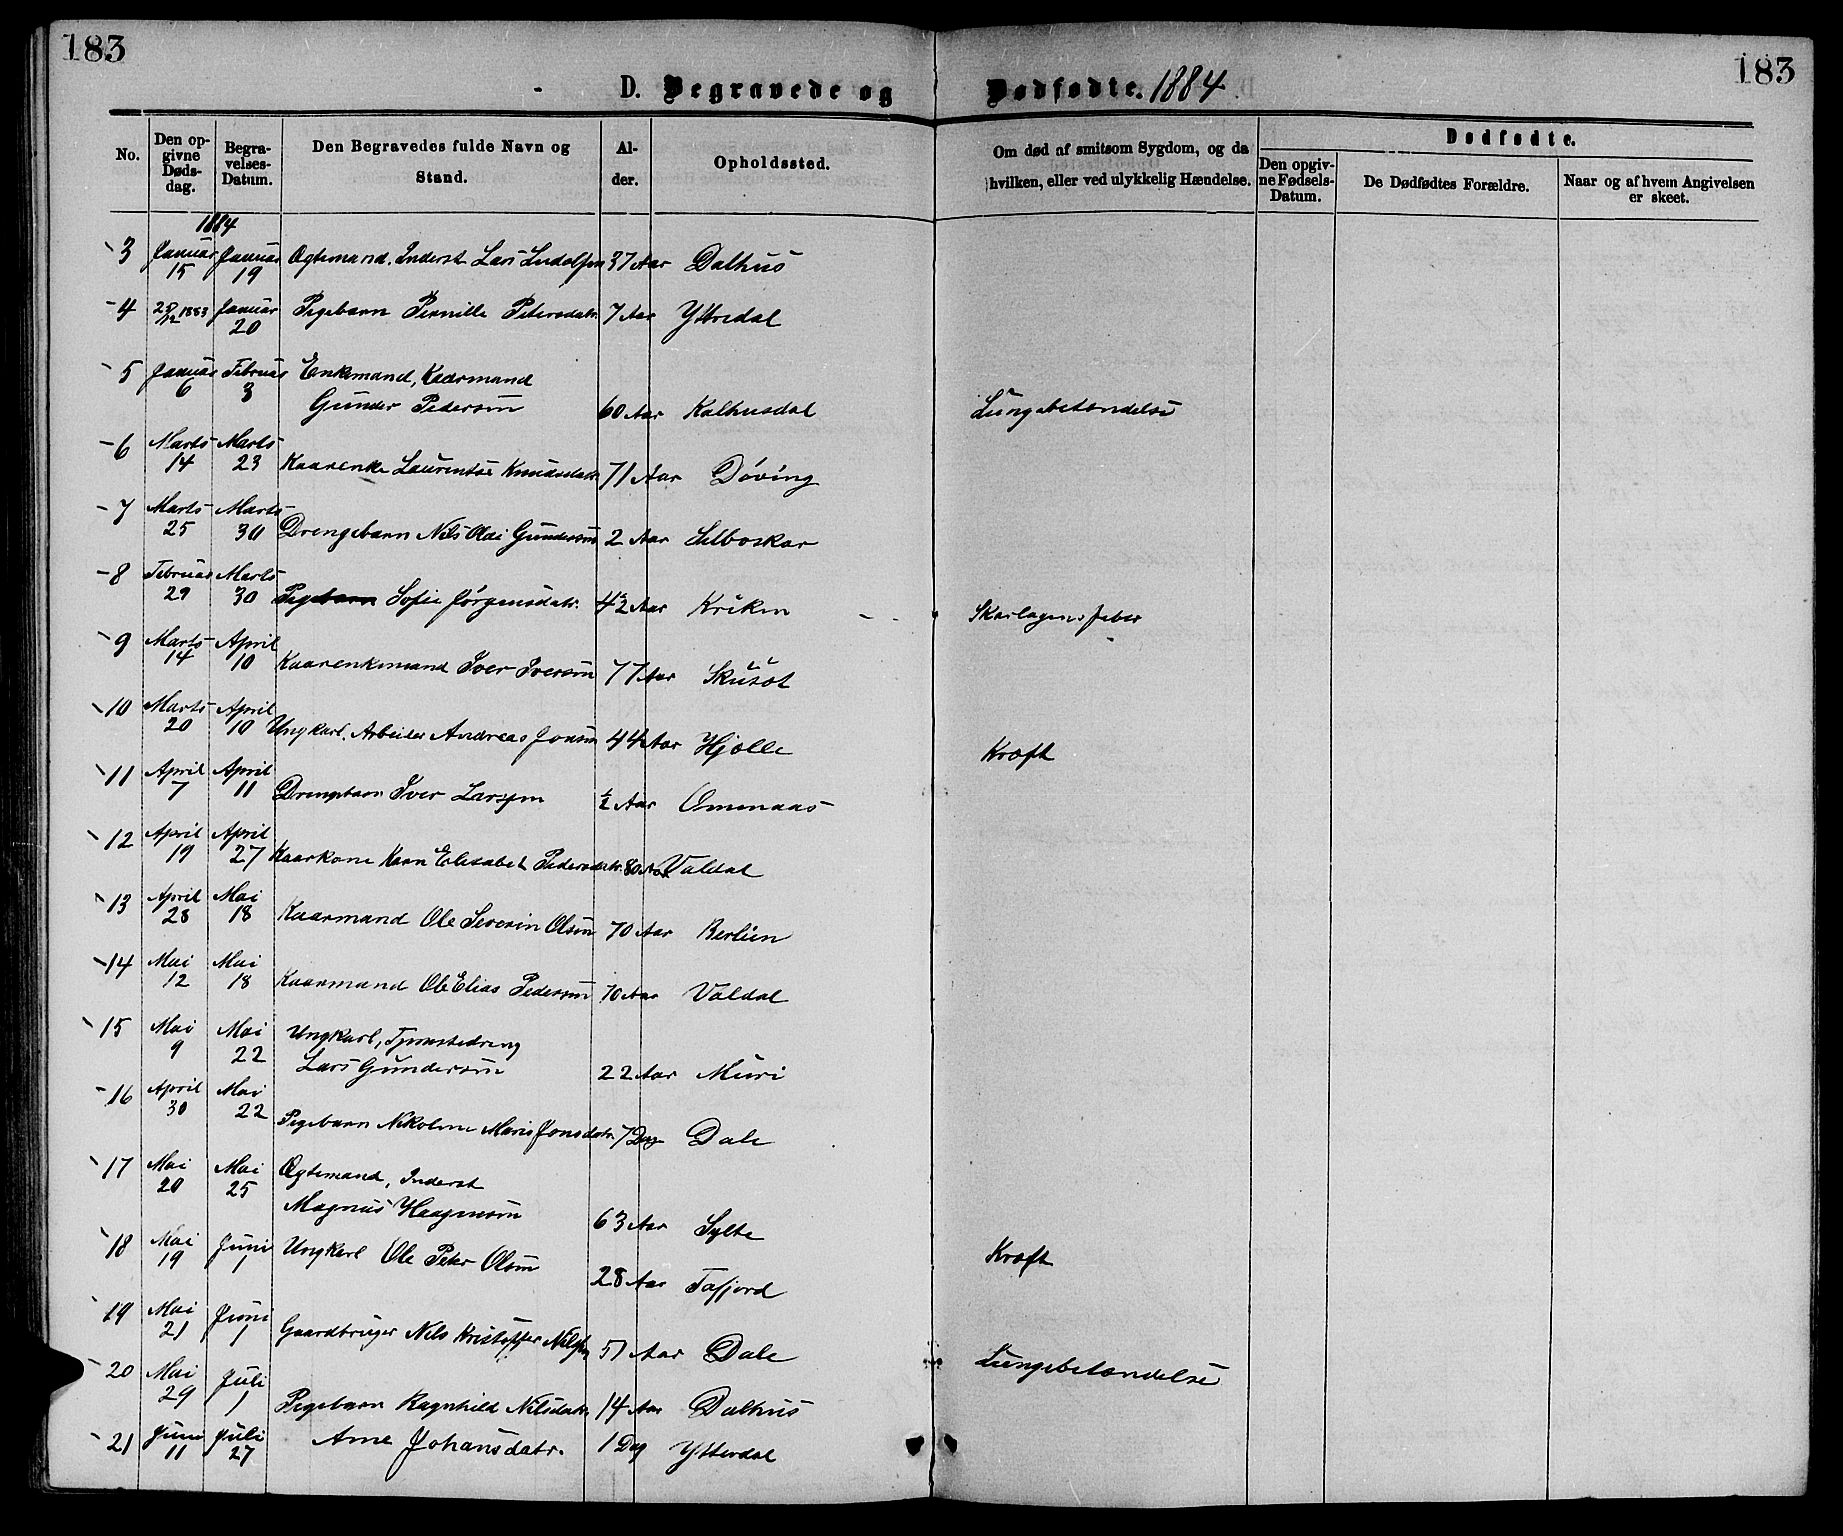 183
183
D. Begravede og Dødfødte. 1884
No.
Den opgivne Dødsdag.
Begravelses-Datum.
Den Begravedes fulde Navn og Stand.
Alder.
Opholdssted.
Om død af smitsom Sygdom, og da hvilken, eller ved ulykkelig Hændelse.
Dødfødte.
Den opgivne Fødsels-Datum.
De Dødfødtes Forældre.
Naar og af hvem Angivelsen er skeet.
1884
3 Januar 15 Januar 19 Ægtemand. Inderst Lars Ludolfsen 37 Aar Dalhus
4 28/12 1883 Januar 20 Pigebarn Pernille Petersdatr. 7 Aar Yttredal
5 Januar 6 Februar 3 Enkemand, Kaarmand
Gunder Pedersen 60 Aar Kalhusdal Lungebetændelse
6 Marts 14 Marts 23 Kaarenke Laurentse Knudsdatr. 71 Aar Døving
7 Marts 25 Marts 30 Drengebarn Nils Olai Gundersen 2 Aar Selboskar
8 Februar 29 Marts 30 Pigebarn Sofie Jørgensdatr. 4½ Aar Kriken Skarlagensfeber
9 Marts 14 April 10 Kaarenkemand Iver Iversen 77 Aar Skusæt
10 Marts 20 April 10 Ungkarl. Arbeider Andreas Jonsen 44 Aar Hjelle Kræft
11 April 7 April 11 Drengebarn Iver Larsen ½ Aar Omenaas
12 April 19 April 27 Kaarkone Karn Elisabet Pedersdatr. 80 Aar Valdal
13 April 28 Mai 18 Kaarmand Ole Severin Olsen 70 Aar Berlien
14 Mai 12 Mai 18 Kaarmand Ole Elias Pedersen 70 Aar Valdal
15 Mai 9 Mai 22 Ungkarl, Tjenestedreng
Lars Gundersen 22 Aar Muri
16 April 30 Mai 22 Pigebarn Nikoline Marie Jonsdatr. 7 Dag Dale
17 Mai 20 Mai 25 Ægtemand, Inderst
Magnus Haagensen 63 Aar Sylte
18 Mai 19 Juni 1 Ungkarl Ole Peter Olsen 28 Aar Tafjord Kræft
19 Mai 21 Juni 1 Gaardbruger Nils Kristoffer Nilsen 51 Aar Dale Lungebetændelse
20 Mai 29 Juli 1 Pigebarn Ragnhild Nilsdatr. 14 Aar Dalhus
21 Juni 11 Juli 27 Ane Johansdatr. 1 Dag Ytterdal